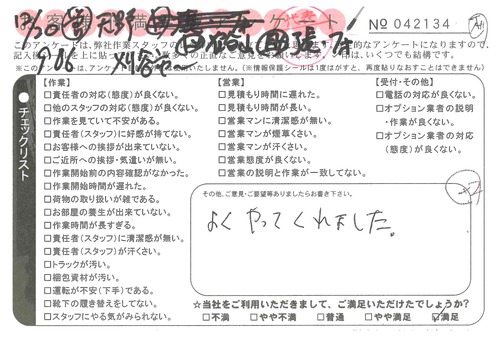 お客様満足度アンケート
No 042134
9:00 刈谷
チェックリスト
【作業】
□責任者の対応(態度)が良くない。
□他のスタッフの対応(態度)が良くない。
□作業を見ていて不安がある。
□責任者(スタッフ)に好感が持てない。
□お客様への挨拶が出来ていない。
□ご近所への挨拶・気遣いが無い。
□作業開始前の内容確認がなかった。
□作業開始時間が遅れた。
□荷物の取り扱いが雑である。
□お部屋の養生が出来ていない。
□作業時間が長すぎる。
□責任者(スタッフ)に清潔感が無い。
□責任者(スタッフ)が汗くさい。
□トラックが汚い。
□梱包資材が汚い。
□運転が不安(下手)である。
□靴下の履き替えをしてない。
□スタッフにやる気がみられない。
【営業】
□見積もり時間に遅れた。
□見積もり時間が長い。
□営業マンに清潔感が無い。
□営業マンが煙草くさい。
□営業マンが汗くさい。
□営業態度が良くない。
□営業の説明と作業が一致してない。
【受付・その他】
□電話の対応が良くない。
□オプション業者の説明
・作業が良くない。
□オプション業者の対応
(態度)が良くない。
その他、ご意見・ご要望等ありましたらお書き下さい。
よくやってくれました。
☆当社をご利用いただきまして、ご満足いただけたでしょうか?
□不満 □やや不満 □普通 □やや満足 ☑満足